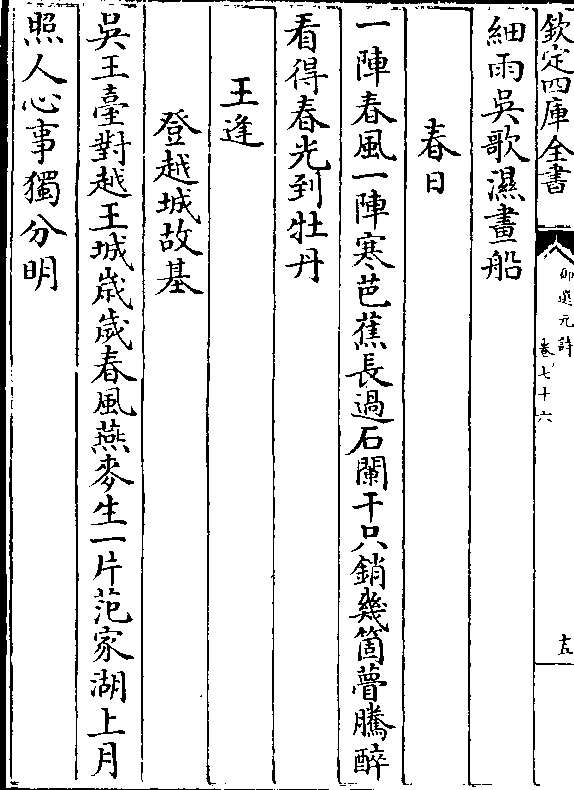 欽定四庫全書
御選元詩
卷七十六
十五
細雨吳歌濕畫船
春日
一陣春風一陣寒芭蕉長過石闌干只銷幾箇瞢騰醉
看得春光到牡丹
王逢
登越城故基
吳王臺對越王城歲歲春風燕麥生一片范家湖上月
照人心事獨分明